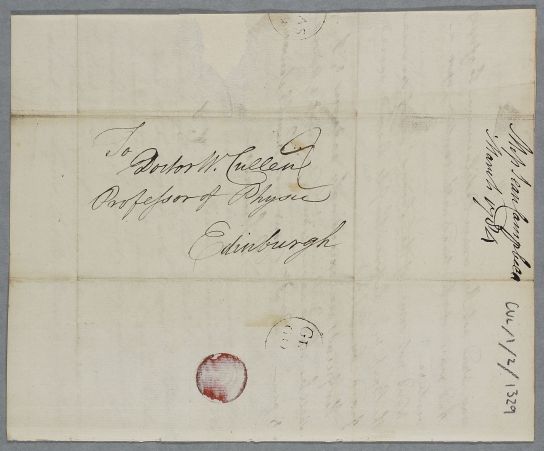 To
Doctor W. Cullen
Professor of Physic
Edinburgh
Miss Jean Campbell
March 1784
CUL/1/2/1329